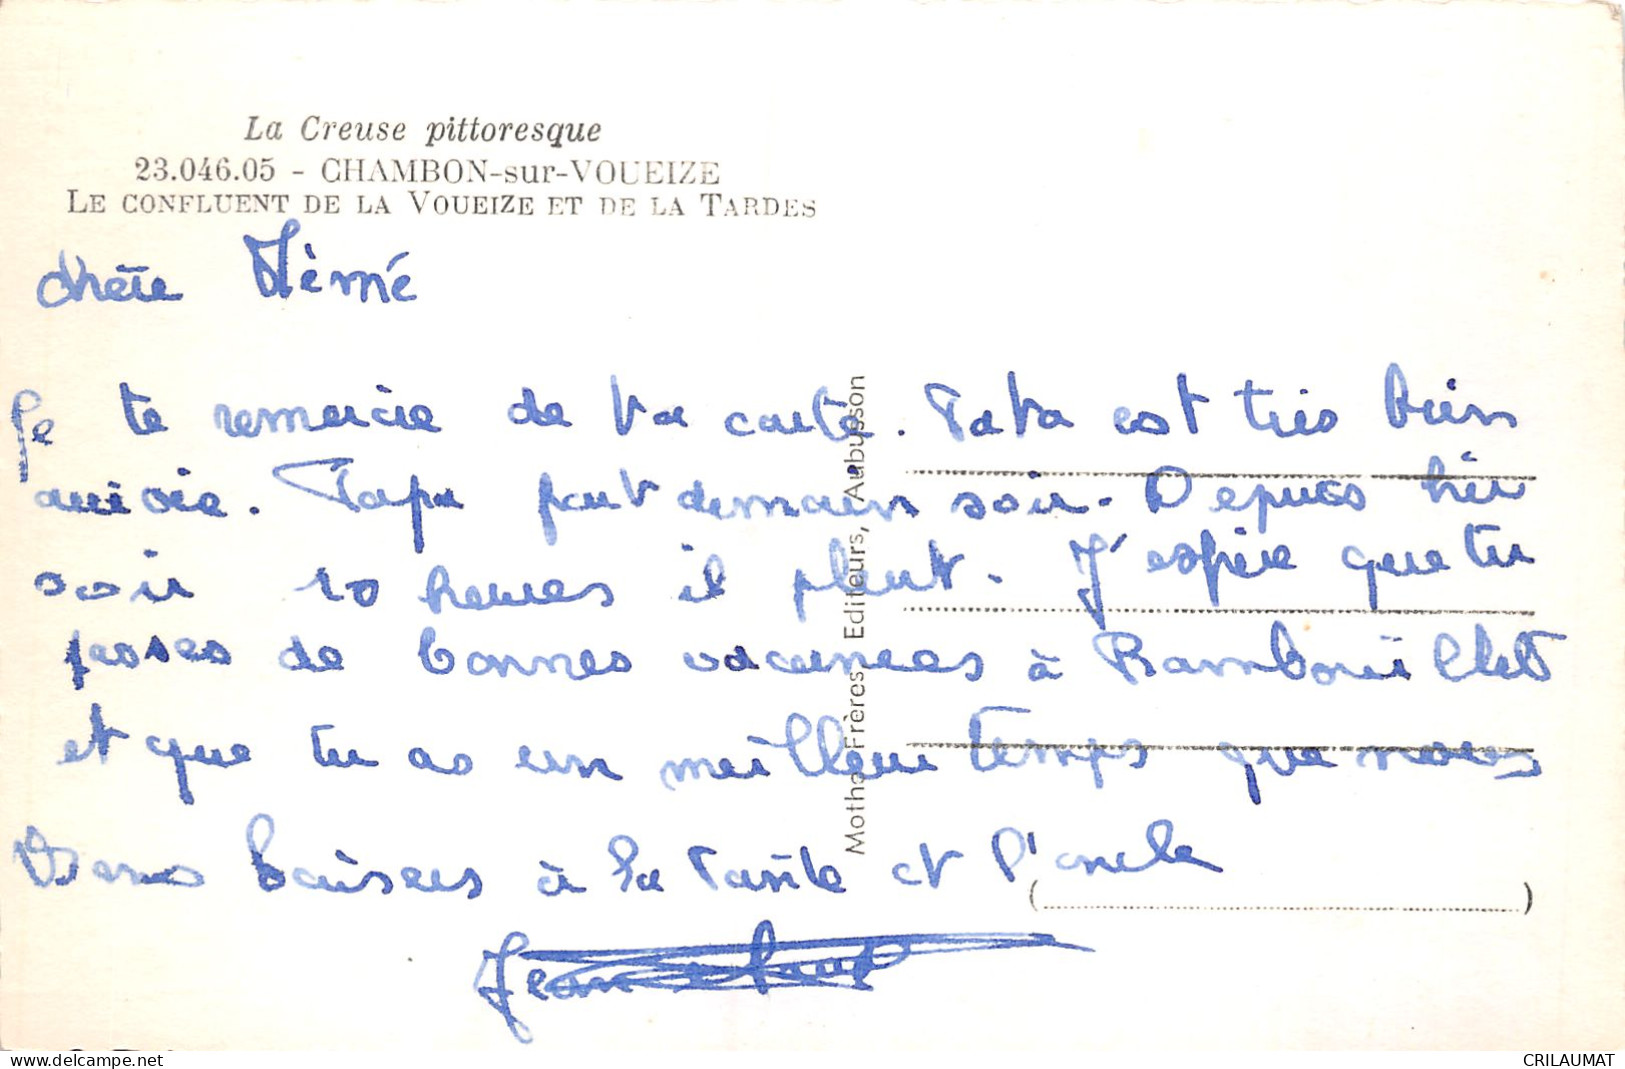 La Creuse pittoresque
23.046.05 - CHAMBON-sur-VOUEIZE
LE CONFLUENT DE LA VOUEIZE ET DE LA TARDES
chère Mèmé
Je te remercie de ta carte. Tata est très bien
arrivée. Papa part demain soir. Depuis hier
soir 10 heures il pleut. J'espère que tu
passes de bonnes vacances à Rambouillet
et que tu as un meilleur temps que nous
Bons baisers à la Tante et l'oncle
Jean
Motha Frères Editeurs, Aubusson
www.delcampe.net
CRILAUMAT